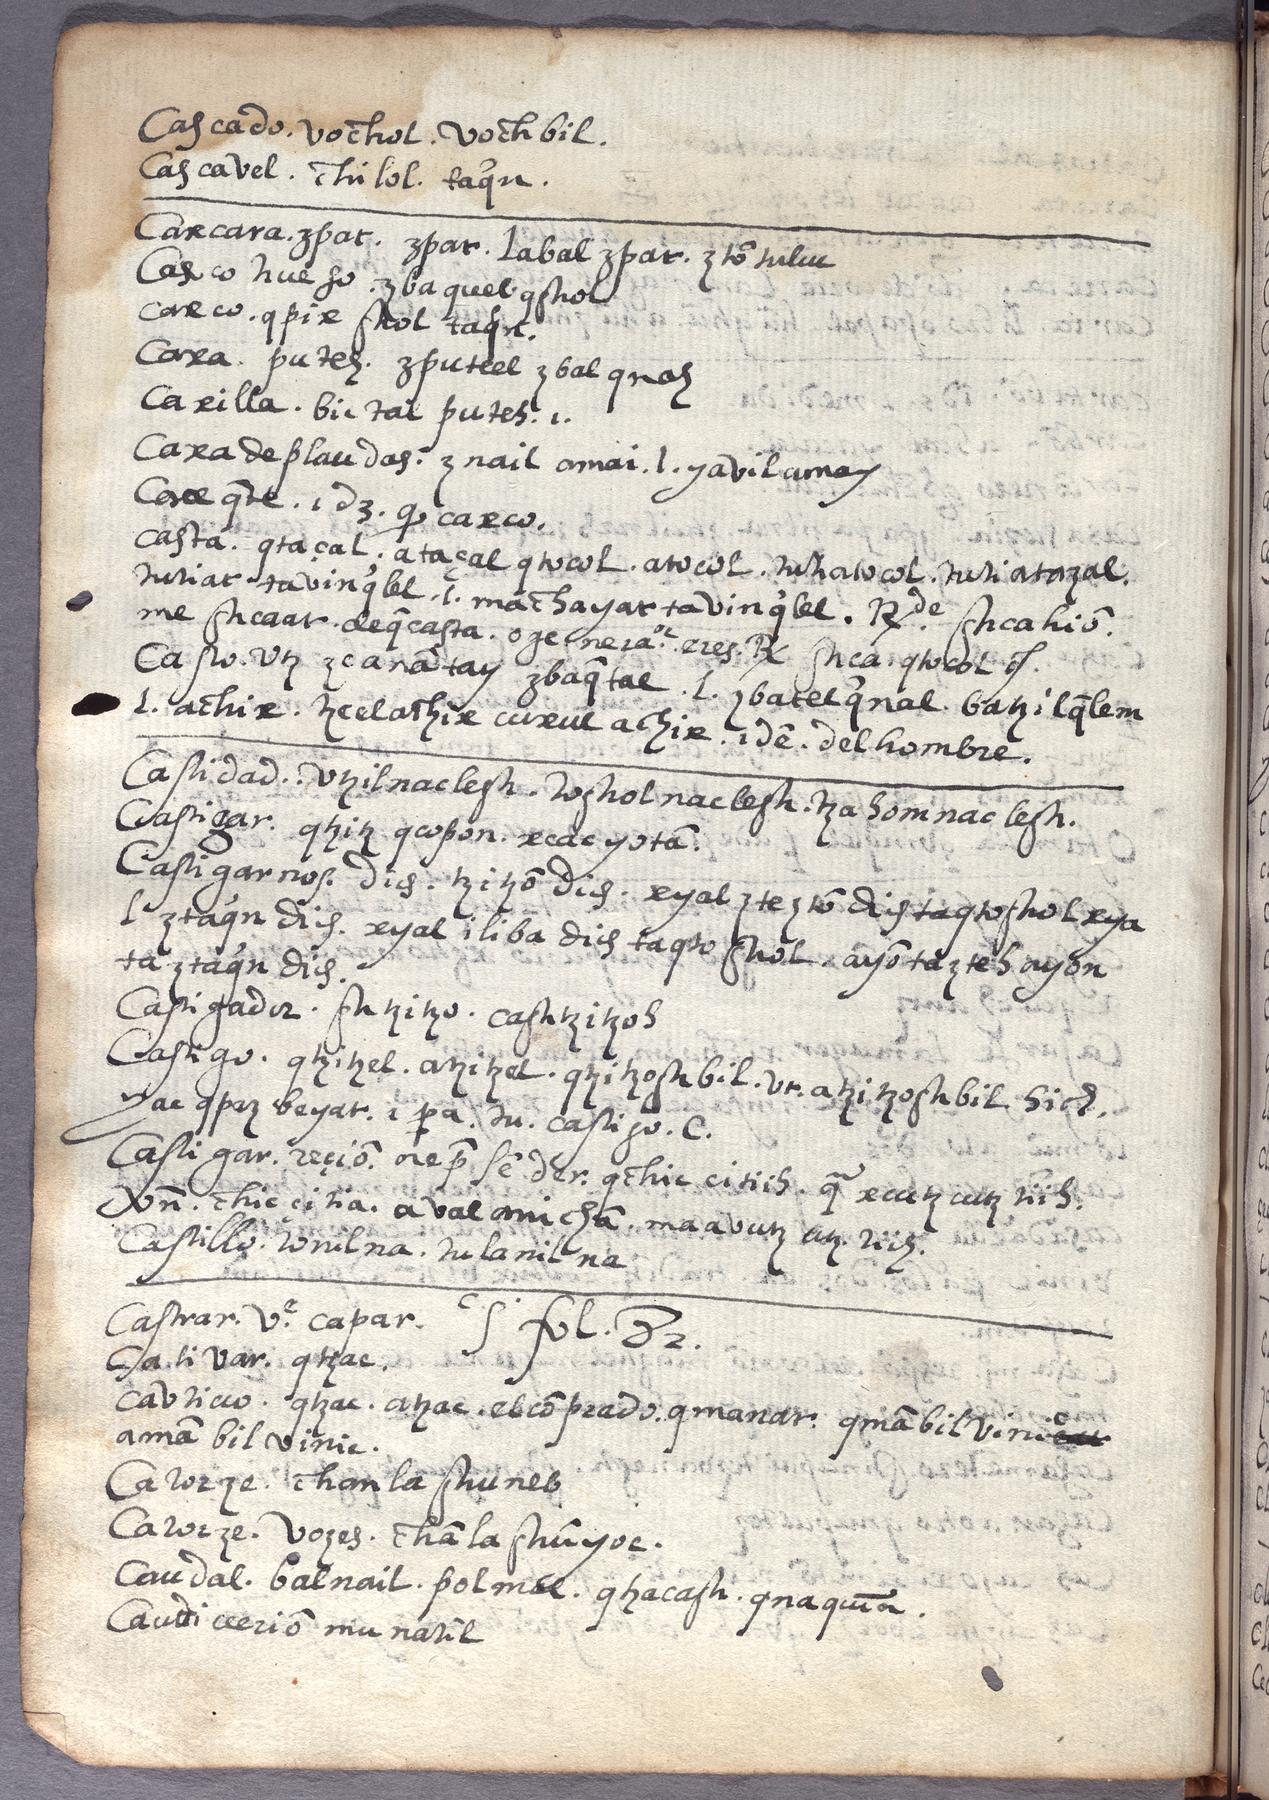 Cascado. voc̄hol. voc̄hbil.
Cascavel. c̄hilol. taq̉n.
Caxcara. zpat. zpat. labal zpat. z tō tuluc
Casco hueso. zbaquel qshol
caxco. qpix shol taq̉n.
Caxa. puteh. zputeel zbal qnah
Caxilla. bictal puteh. ı.
Caxa de plaudas. z nail amai. l. yavil amay
Caxeq̄te. ıdz. qͦ caxco.
casta. qtaçal. ataçal qtocol. atocol. tuhatocol. tuhatazal.
tutiat tavinq̉lel. l. mac̄hayat tavinq̉lel. Rde. shcahiō.
me shcaat. deq̄casta. o generaor. eres. R shca. qtocol
Casto. vtz zcanātay zbaq̄tal. l. zbatelq̉nal. batzilq̄lem
l. ac̄hix. tzcelac̄hix cuxul achix. ıdē. del hombre.
Castidad. vtzilnaclesh. toghol naclesh. tzahomnaclesh.
Castigar. qtzitz qcopon. xcac yotā.
Castigarnos. dios. tzitzō dios. xyal zteztō dios taqtoshol xya
l ztaq̉n dios. xyal iliba dios taqto shol. ayō tazteh ayon
ta ztaq̉n dios.
Castigador. shtzitzo. cashtzitzoh
Castigo. qtzitzel. atzitzel. qtzitzoshbil. vt. atzitzoshbil hich.
yac qpatz beyat. ı pa. tu. castigo. C.
Castigar. reçiō. nep̄ sē der. qc̄hic citiih. qa xcutz cutz tiih.
Vn̄. c̄hic çitia. aval amichā. maavutz utz. tiih.
Castillo. tonilna. tulanil na
Castrar. ve capar. fol. 32.
Cativar. qtzac.
cavtivo. qtzac. atzac. el cōprado. qmanat. qmābil vinic
amā bil vinic.
Catorze. c̄hanlashuneb
Catorze. vozes. c̄hālashūyoc.
Caudal. balnail. polmal. qtzacash. qnaqūn.
Caudiccerió munatil